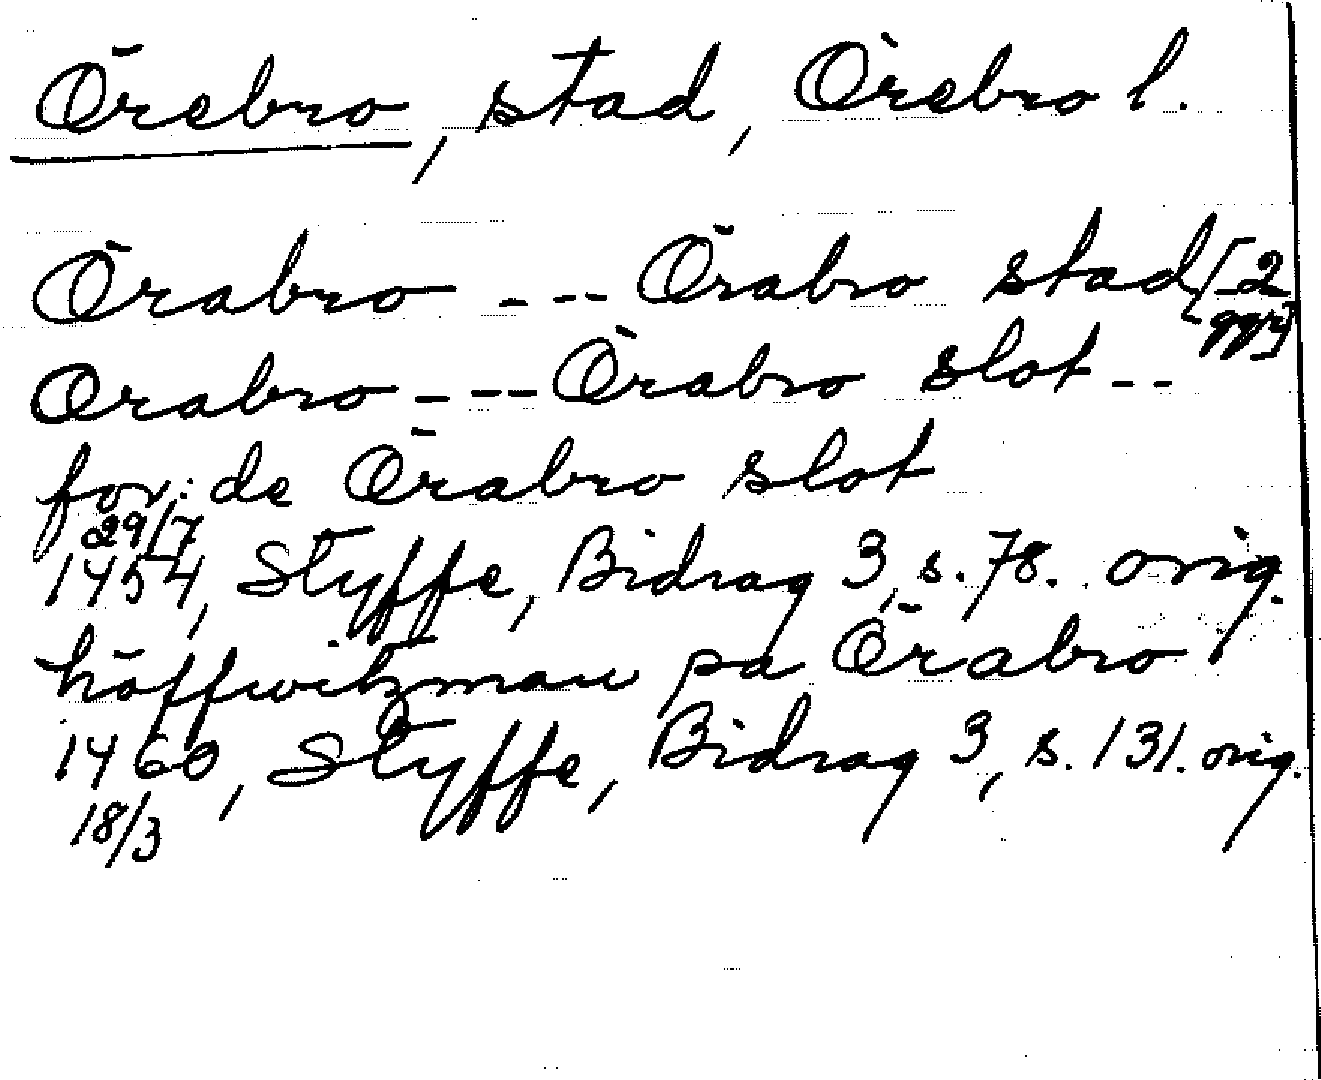 Örebro, stad, Örebro l.
Örabro --- Örabro stad [2 ggr]
Orabro --- Örabro slot --
for: de Örabro slot
29/7
1454, Styffe, Bidrag 3, s. 78. orig.
höffwitzman pa Örabro
1460, Styffe, Bidrag 3, s. 131. orig.
18/3